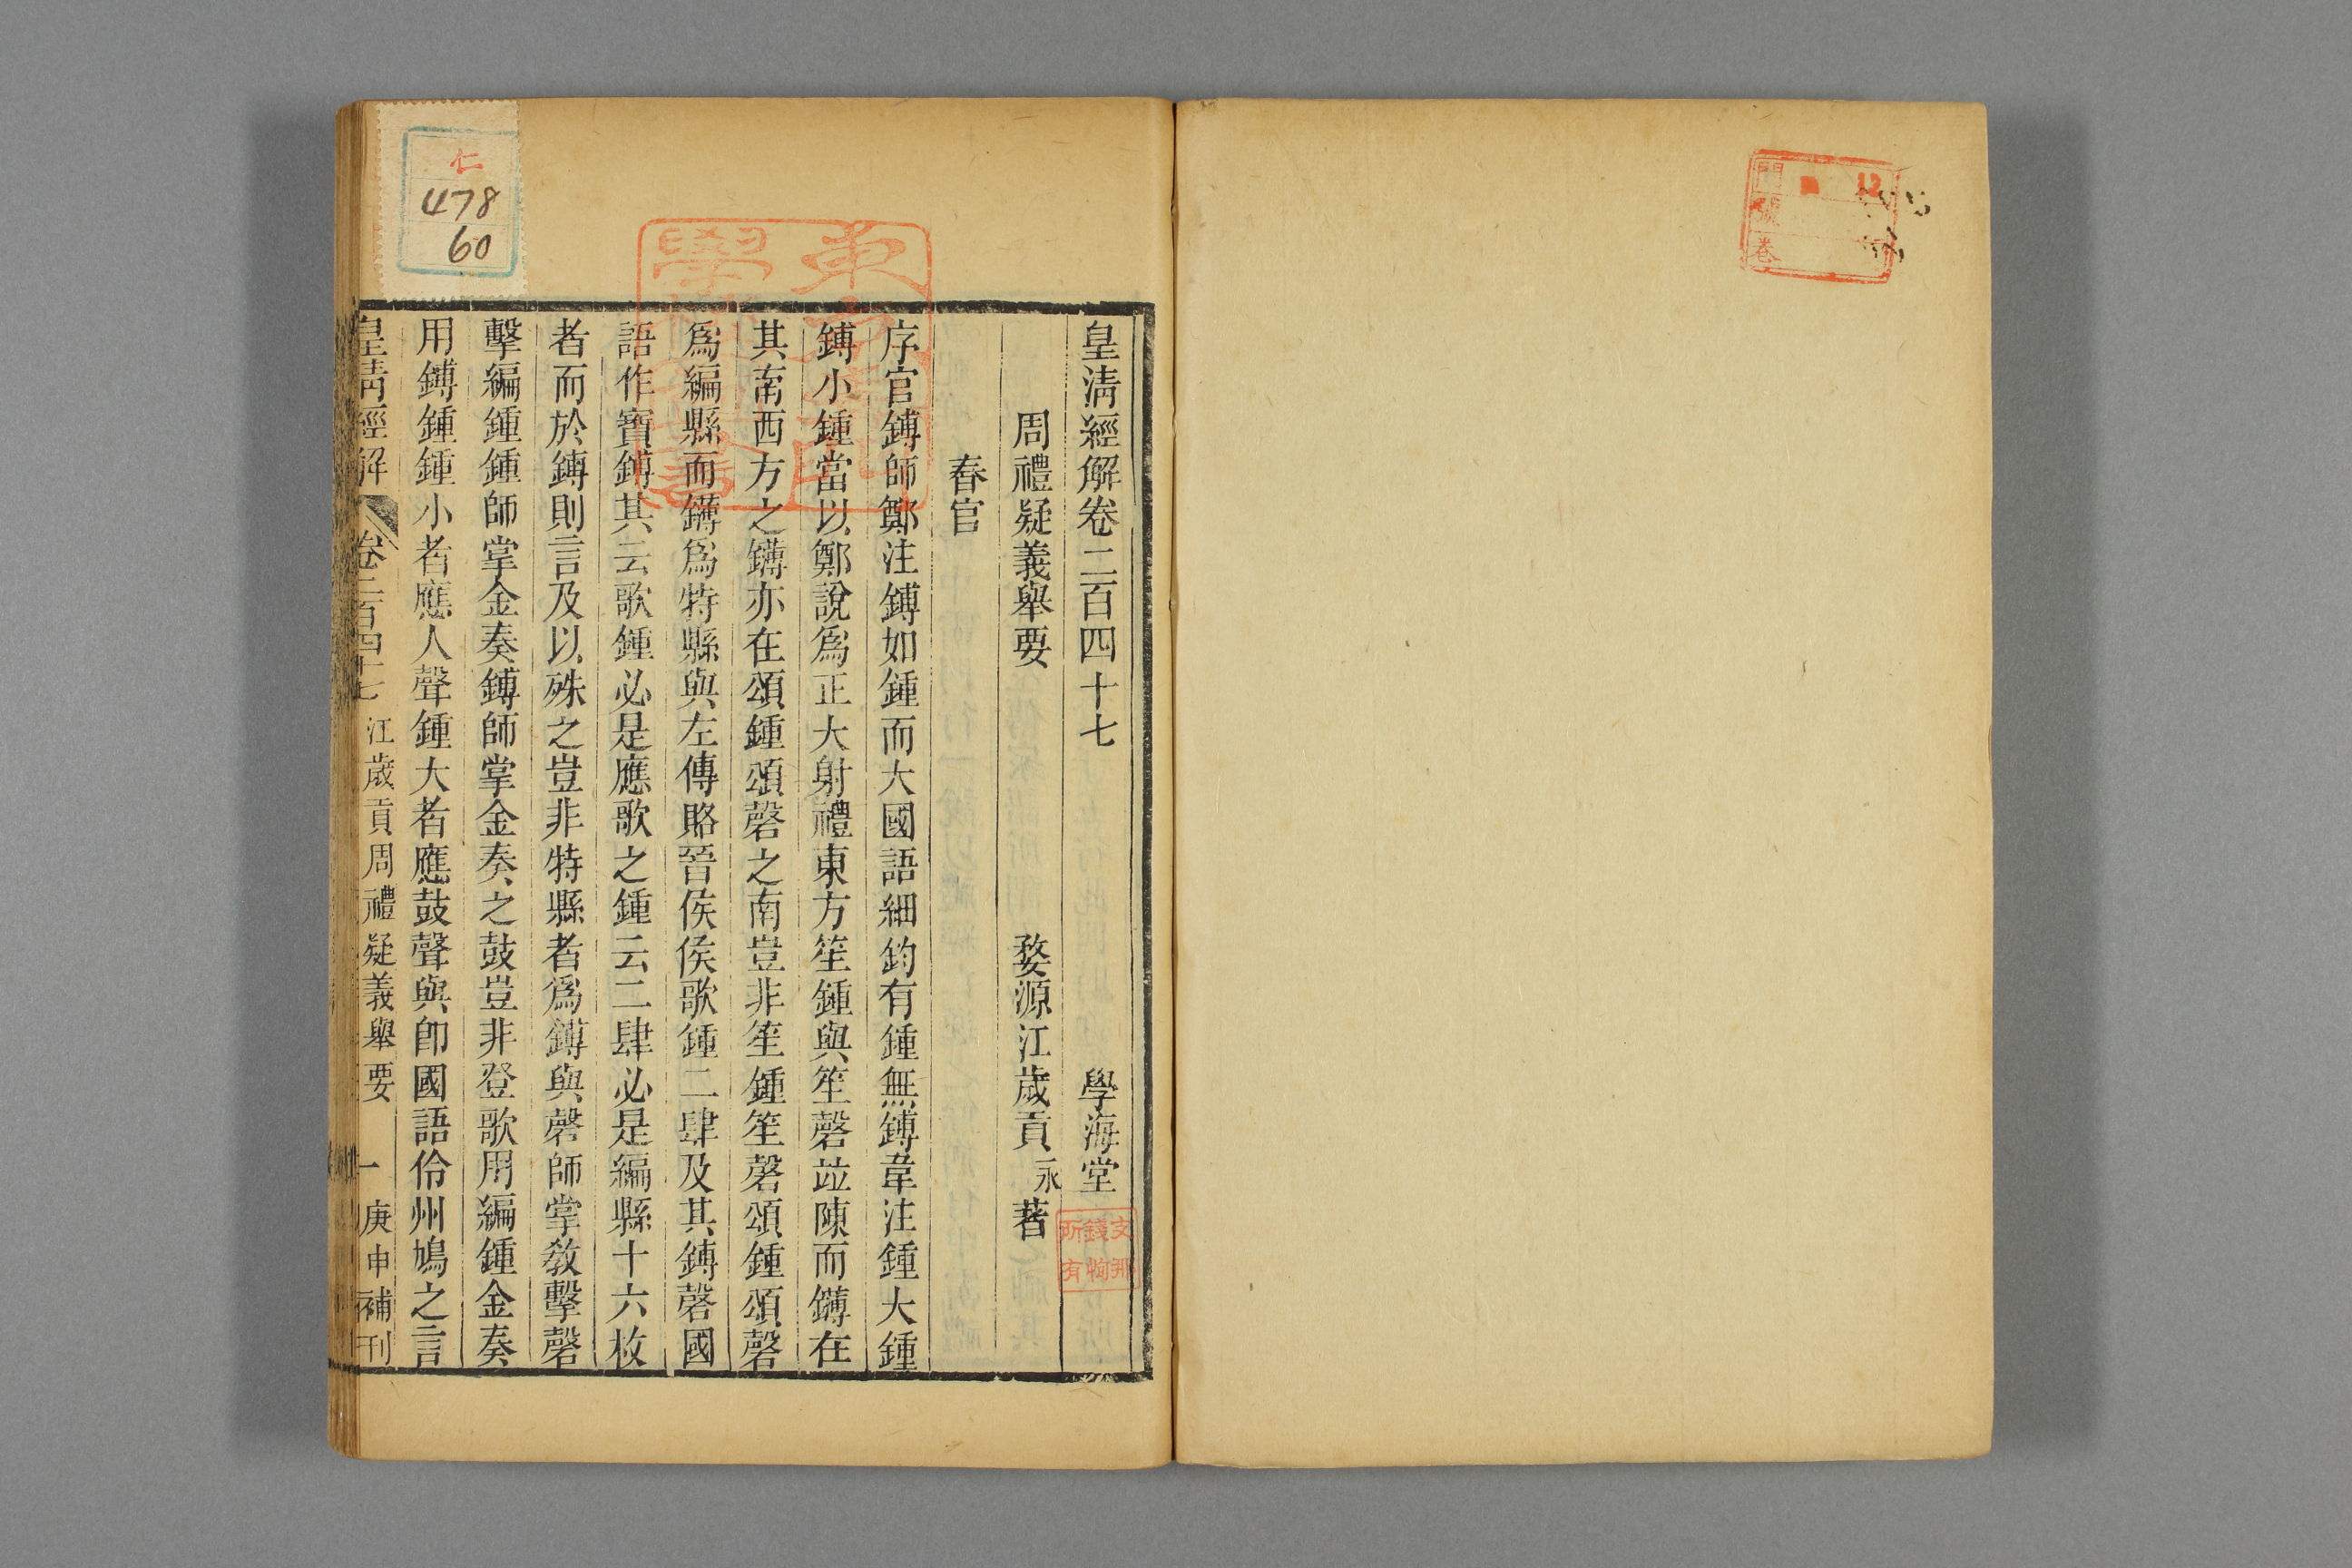 門 12
號
卷
皇淸經解卷二百四十七 學海堂
周禮疑義舉要 婺源江歲貢永著
春官
序官鎛師鄭注鎛如鍾而大國語細鈞有鍾無鎛韋注鍾大鍾
鎛小鍾當以鄭說爲正大射禮東方笙鍾與笙磬竝陳而鑮在
其南西方之鑮亦在頌鍾頌磬之南豈非笙鍾笙磬頌鍾頌磬
爲編縣而鑮爲特縣與左傳賂晉侯侯歌鍾二肆及其鎛磬國
語作寶鎛其云歌鍾必是應歌之鍾云二肆必是編縣十六枚
者而於鎛則言及以殊之豈非特縣者爲鎛與磬師掌敎擊磬
擊編鍾鍾師掌金奏鎛師掌金奏之鼓豈非登歌用編鍾金奏
用鎛鍾鍾小者應人聲鍾大者應鼓聲與卽國語伶州鳩之言
皇淸經解 卷二百四十七 江歲貢周禮疑義舉要 一 庚申補刊
仁
478
60